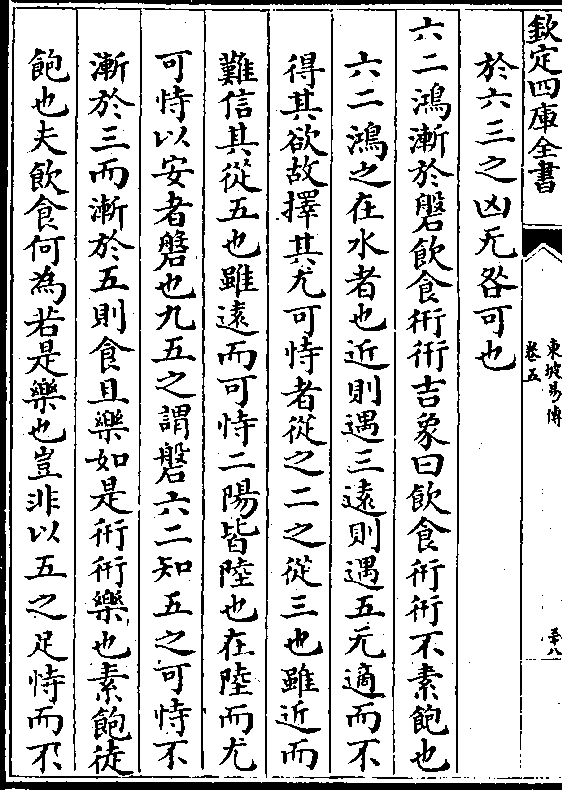 欽定四庫全書
東坡易傳
卷五
於六三之凶无咎可也
六二鴻漸於磐飲食衎衎吉象曰飲食衎衎不素飽也
六二鴻之在水者也近則遇三遠則遇五无適而不
得其欲故擇其尤可恃者從之二之從三也雖近而
難信其從五也雖遠而可恃二陽皆陸也在陸而尤
可恃以安者磐也九五之謂磐六二知五之可恃不
漸於三而漸於五則食且樂如是衎衎樂也素飽徒
飽也夫飲食何為若是樂也豈非以五之足恃而不